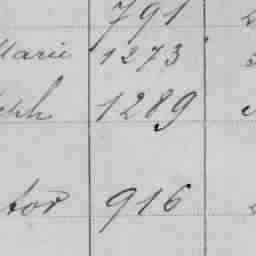 791
Marie 1273
1289
tor 916